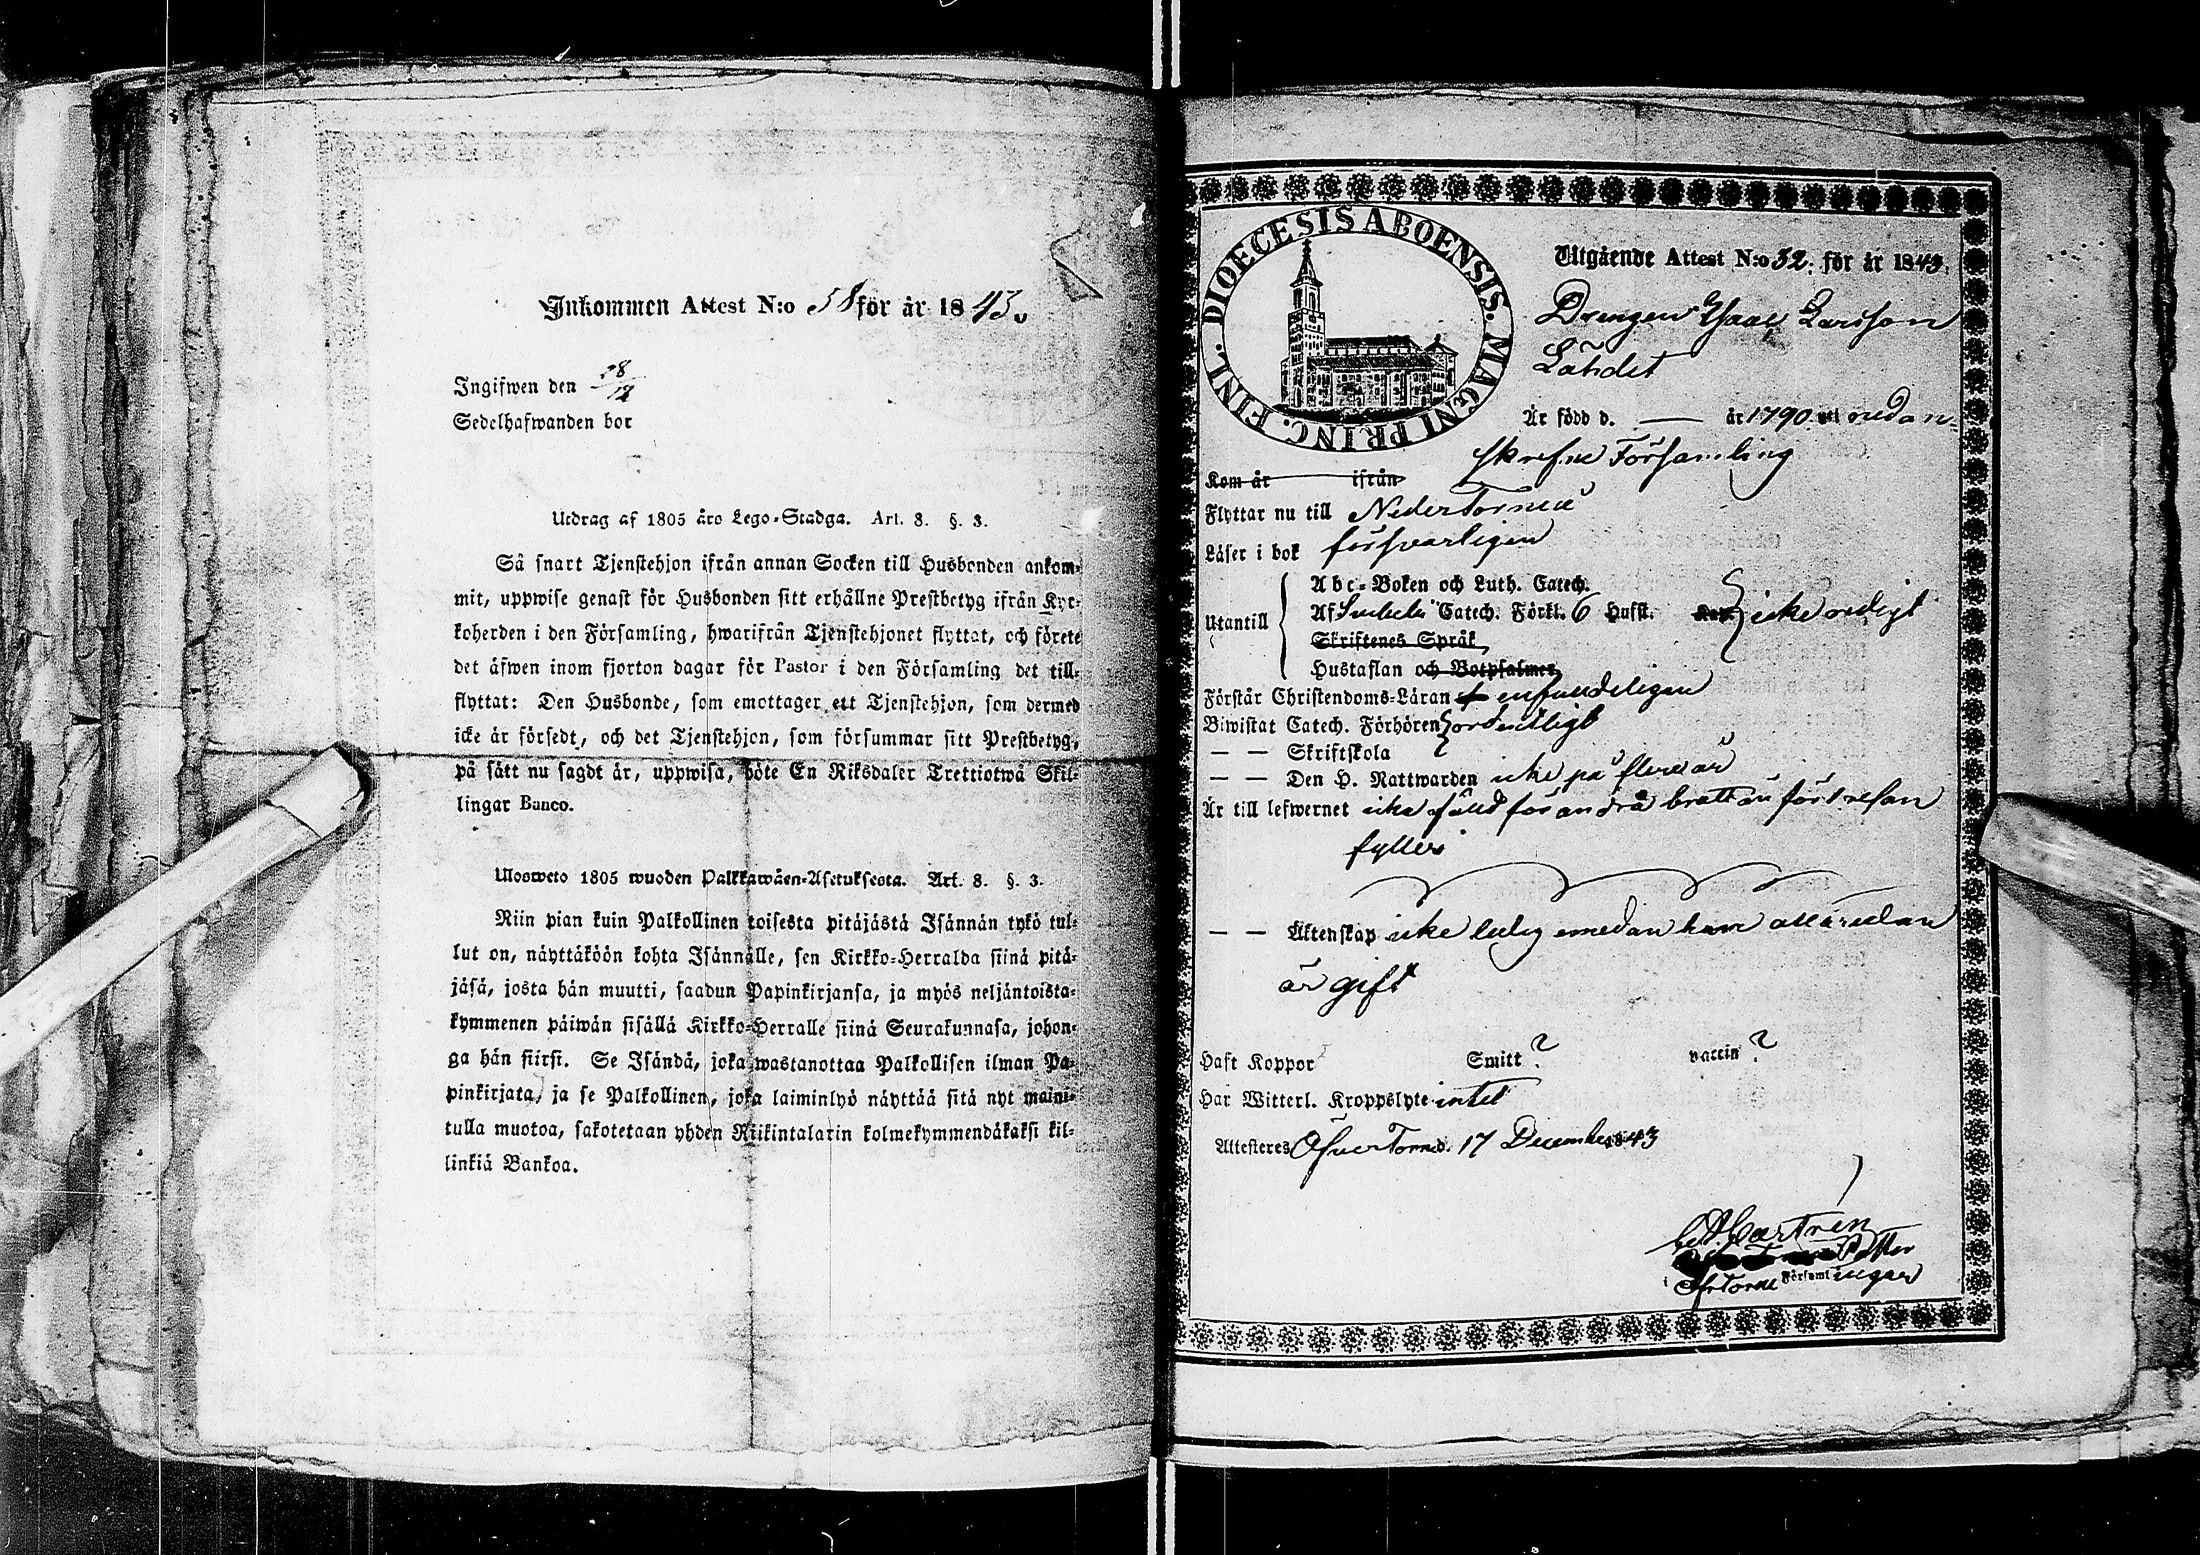 Inkommen Attest N:o 58 för år 1843.
Ingifwen den 28/12
Sedelhafwanden bor
Utdrag af 1805 års Lego-Stadga. Art. 8. §. 3.
Så snart Tjenstehjon ifrån annan Socken till Husbonden ankom-
mit, uppwise genast för Husbonden sitt erhållne Prestbetyg ifrån Kyr-
koherden i den Församling, hwarifrån Tjenstehjonet flyttat, och förete
det äfwen inom fjorton dagar för Pastor i den Församling det till-
flyttat: Den Husbonde, som emottager ett Tjenstehjon, som dermed
icke är försedt, och det Tjenstehjon, som försummar sitt Prestbetyg,
på sätt nu sagdt är, uppwisa, böte En Riksdaler Trettiotwå Skil-
lingar Banco.
Ulosweto 1805 wuoden Palkkawäen-Asetuksesta. Art. 8. §. 3.
Niin pian kuin Palkollinen toisesta pitäjästä Isännän tykö tul-
lut on, näyttäköön kohta Isännälle, sen Kirkko-Herralda siinä pitä-
jäsä, josta hän muutti, saadun Papinkirjansa, ja myös neljäntoista-
kymmenen päiwän sisällä Kirkko-Herralle siinä Seurakunnasa, johon-
ga hän siirsi. Se Isändä, joka wastanottaa Palkollisen ilman Pa-
pinkirjata, ja se Palkollinen, joka laiminlyö näyttää sitä nyt maini-
tulla muotoa, sakotetaan yhden Riikintalarin kolmekymmendäkaksi kil-
linkiä Bankoa.
DIOECESIS ABOENSIS. MAGNI PRINC. FINL.
Utgående Attest N:o 52. för år 1843.
Drengen Isaac Larsson
Lahdet
Är född d. — år 1790. uti nedan-
skrefne Församling
Kom år ifrån
Flyttar nu till Neder Torneå
Läser i bok försvarligen
Abc-Boken och Luth. Catech.
Utantill Af Catech. Förkl. 6 Hufst. icke redigt
Skriftenes Språk
Hustaflan och Botpsalmer
Förstår Christendoms-Läran
Biwistat Catech. Förhören ordentligt
— — Skriftskola
— — Den H. Nattwarden icke på flere år
Är till lefwernet icke för andra brott än för
fylleri
— — Äktenskap icke ledig emedan han allaredan
är gift
Haft Koppor Smitt ? vaccin ?
Har Witterl. Kroppslyte intet
Attesteres Öfver Torneå d. 17 December 1843
Castrén
i Församl